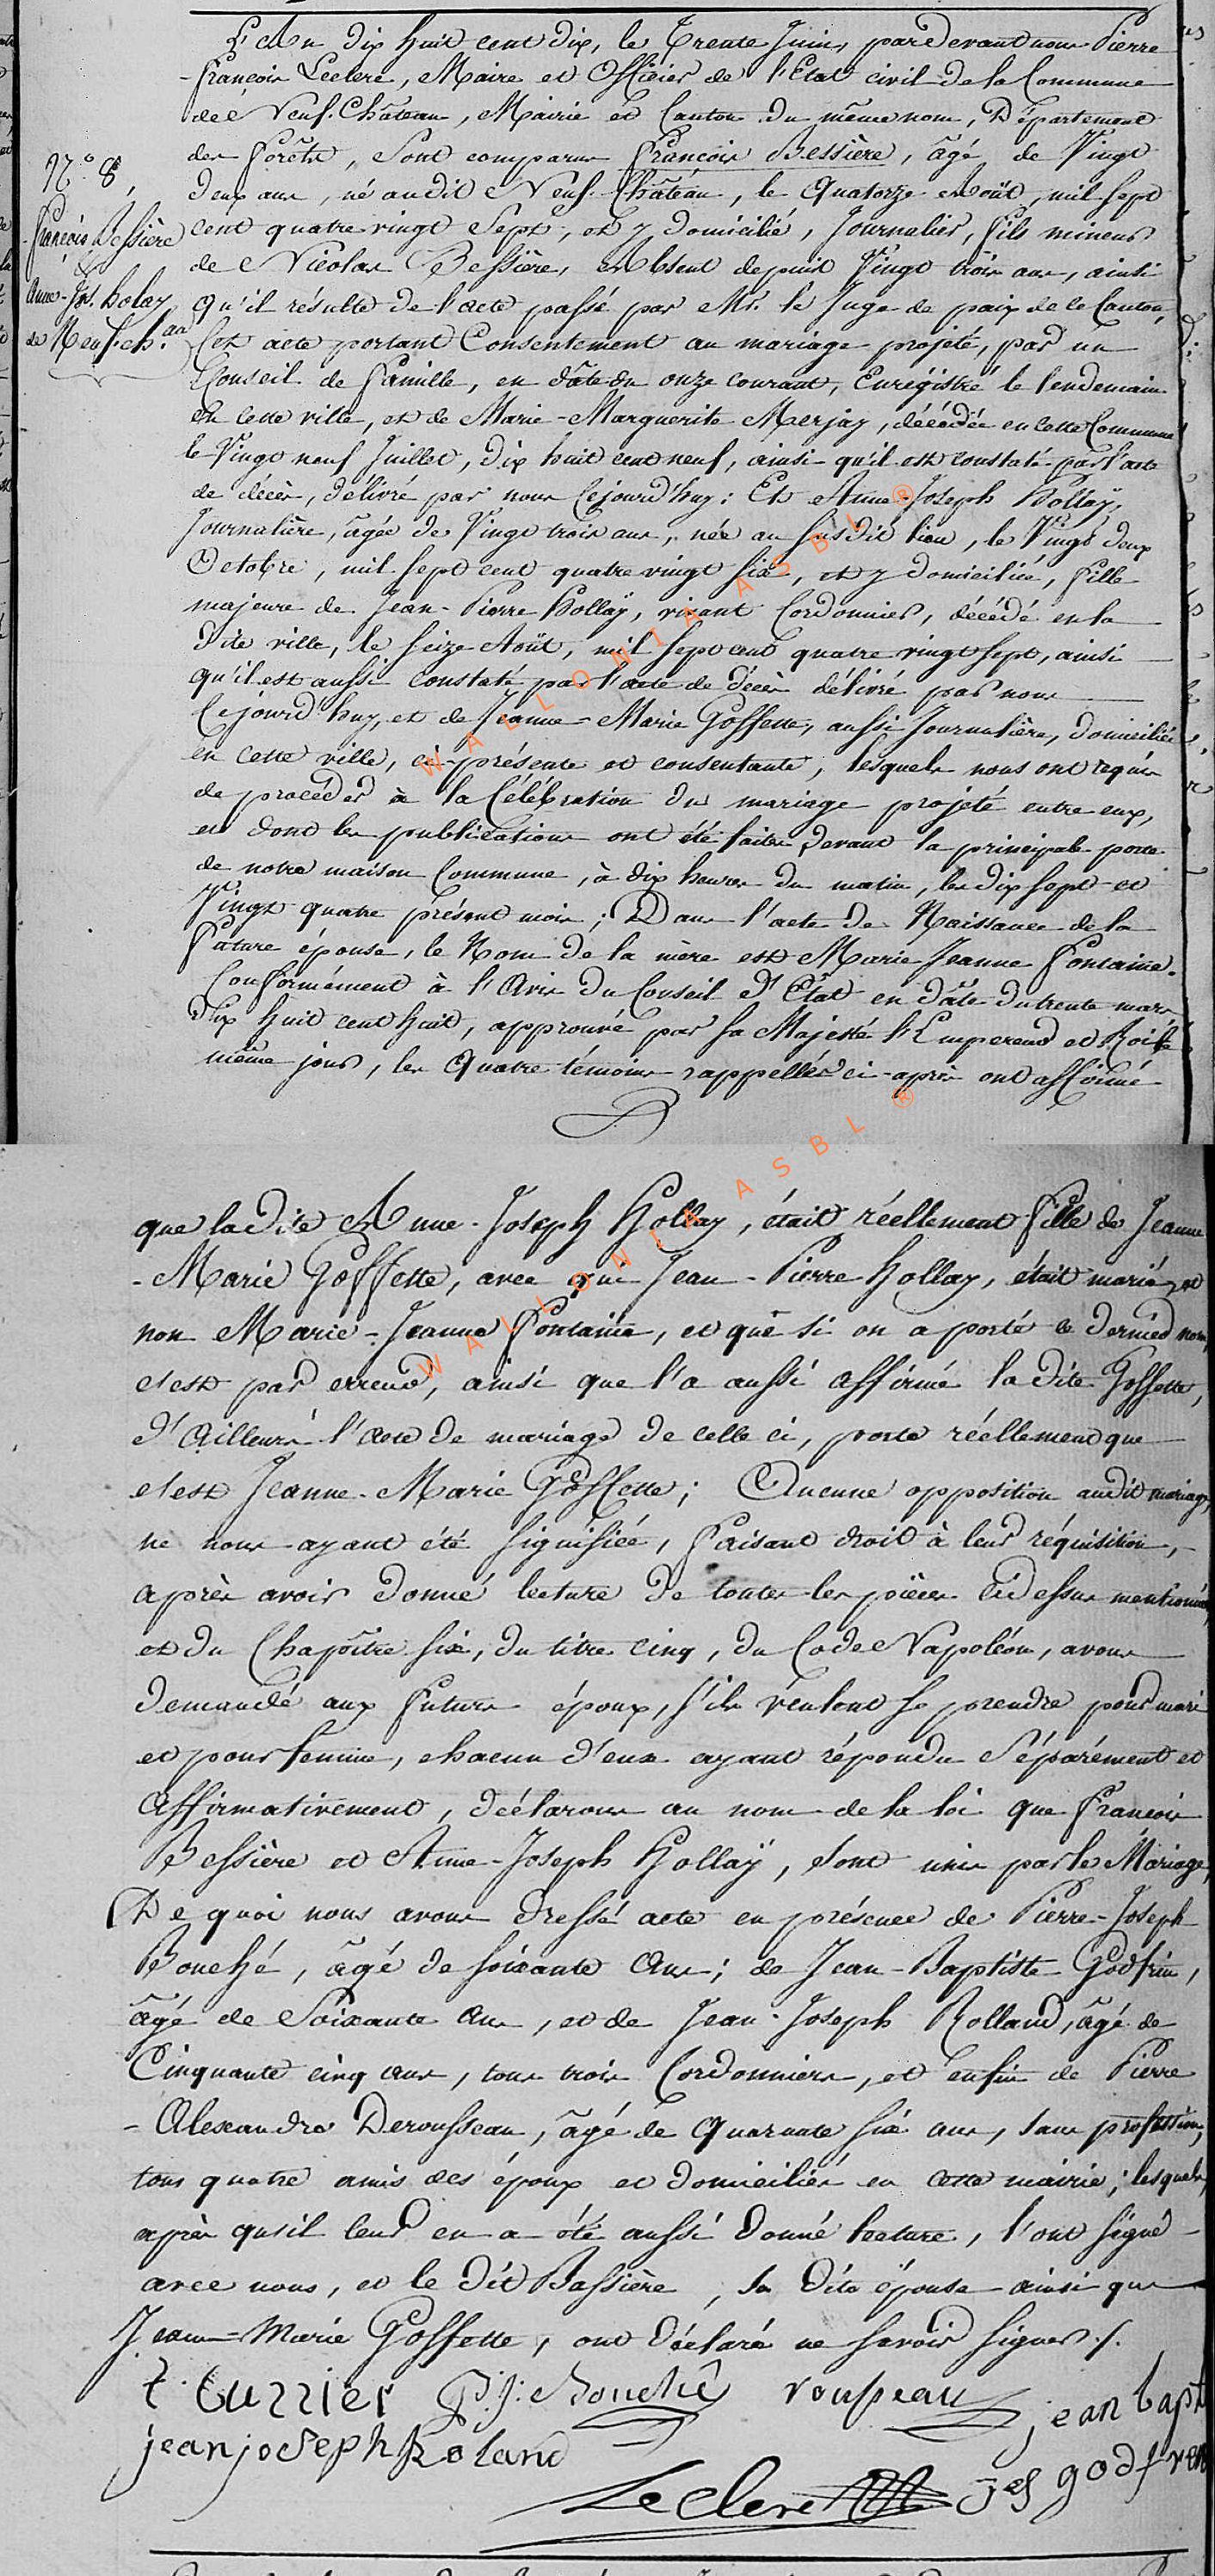 L'An dix huit cent dix, le Trente Juin, pardevant nous Pierre
-françois Leclere, Maire et Officier de l'Etat civil de la Commune
de Neuf-Château, Mairie et Canton du même nom, Département
des forêts, Sont comparus françois Bessière, âgé de Vingt
deux ans, né audit Neuf-Château, le Quatorze Août, mil sept
cent quatre vingt Sept, et y domicilié, Journalier, fils mineur
de Nicolas Bessière, Absent depuis Vingt trois ans, ainsi
qu'il résulte de l'acte passé par Mr. le Juge de paix de ce Canton,
Cet acte portant Consentement au mariage projeté, par un
Conseil de famille, en dâte du onze courant, Enrégistré le lendemain
en cette ville, et de Marie-Marguerite Merjay, décédée en cette Commune
le Vingt neuf Juillet, dix huit cent neuf, ainsi qu'il est constaté par l'acte
de décès, délivré par nous Cejourd'huy: Et Anne-Joseph Hollaÿ,
Journalière, âgée de Vingt trois ans, née au susdit lieu, le Vingt deux
Octobre, mil sept cent quatre vingt six, et y domiciliée, fille
majeure de Jean-Pierre Hollaÿ, vivant Cordonnier, décédé en la
dite ville, le seize Août, mil sept cent quatre vingt sept, ainsi
qu'il est aussi constaté par l'acte de décès délivré par nous
Cejourd'huy, et de Jeanne-Marie Goffette, aussi Journalière, domiciliée
en cette ville, ci-présente et consentante, lesquels nous ont requis
de procéder à la Célébration du mariage projeté entre eux,
et dont les publications ont été faites devant la principale porte
de notre maison Commune, à dix heures du matin, les dix sept et
Vingt quatre présent mois; Dans l'acte de Naissance de la
future épouse, le Nom de la mère est Marie Jeanne fontaine.
Conformément à l'Avis du Conseil d'Etât en dâte du trente mars
dix huit cent huit, approuvé par sa Majesté l'Empereur et Roi le
même jour, les Quatre témoins rappellés ci-après ont affirmé
N.° 8,
françois Bessière
&
Anne-Jos. holay
de Neufch.au
que la dite Anne-Joseph Hollay, était réellement fille de Jeanne
-Marie Goffette, avec qui Jean-Pierre Hollay, était marié, et
non Marie-Jeanne fontaine, et que si on a porté ce dernier nom,
c'est par erreur, ainsi que l'a aussi affirmé la dite Goffette,
d'Ailleurs l'acte de mariage de celle ci, porte réellement que
c'est Jeanne-Marie Goffette; Aucune opposition audit mariage,
ne nous ayant été signifiée, faisant droit à leur réquisition,
après avoir donné lecture de toutes les pièces ci dessus mentionnées,
et du Chapître six, du titre cinq, du Code Napoléon, avons
demandé aux futurs époux, s'ils veulent se prendre pour mari
et pour femme, chacun d'eux ayant répondu Séparément et
Affirmativement, déclarons au nom de la loi que françois
Bessière et Anne-Joseph Hollaÿ, sont unis par le Mariage,
De quoi nous avons dressé acte en présence de Pierre-Joseph
Bouché, âgé de soixante Ans; de Jean-Baptiste Godfrin,
âgé de Soixante Ans, et de Jean-Joseph Rolland, âgé de
Cinquante cinq ans, tous trois Cordonniers, et enfin de Pierre
-Alexandre Derousseau, âgé de Quarante six ans, sans profession,
tous quatre amis des époux et domiciliés en cette mairie; lesquels
après qu'il leur en a été aussi donné lecture, l'ont signé
avec nous, et le dit Bassière, sa dite épouse ainsi que
Jeanne-Marie Goffette, ont déclaré ne savoir signer./.
P. J. Bouché rousseau jean bapt
jean joseph Roland
Leclere godfren
WALLONIA ASBL ®
WALLONIA ASBL ®